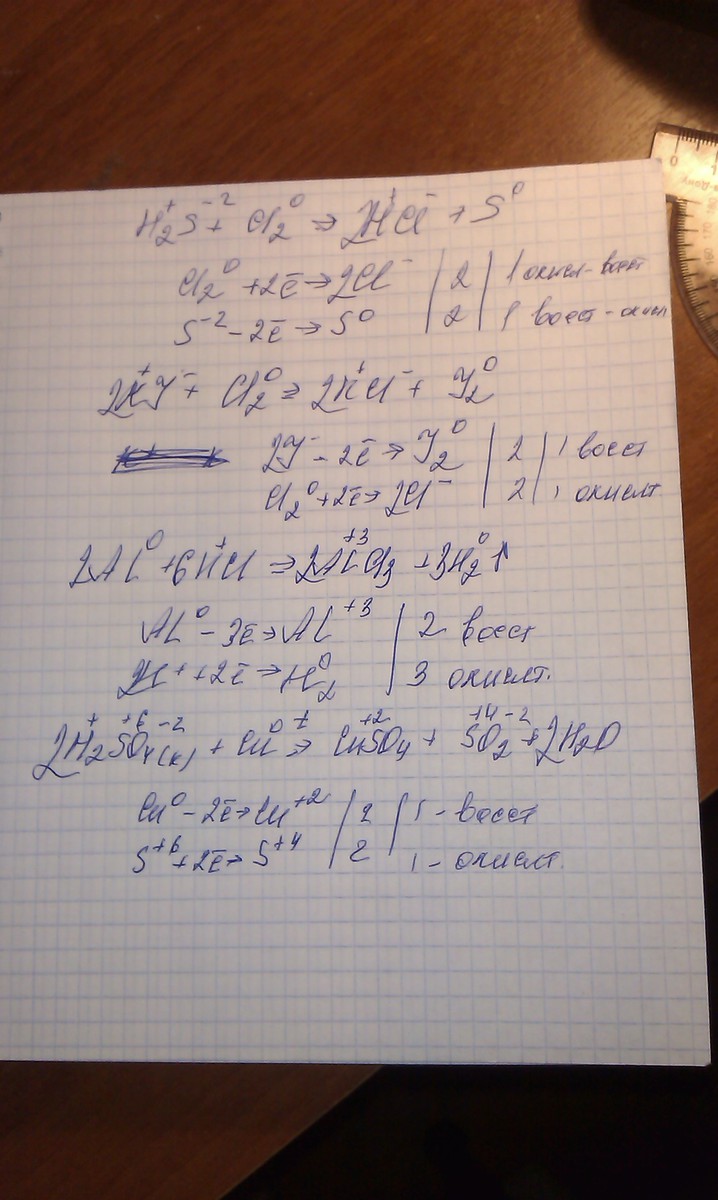 H₂⁺S⁻² + Cl₂⁰ ⇒ 2H⁺Cl⁻ + S⁰
Cl₂⁰ + 2ē → 2Cl⁻ | 2 | 1 окисл-восст
S⁻² - 2ē → S⁰ | 2 | 1 восст-окисл
2K⁺J⁻ + Cl₂⁰ ⇒ 2K⁺Cl⁻ + J₂⁰
2J⁻ - 2ē → J₂⁰ | 2 | 1 восст
Cl₂⁰ + 2ē → 2Cl⁻ | 2 | 1 окислт
2Al⁰ + 6H⁺Cl ⇒ 2Al⁺³Cl₃ + 3H₂⁰↑
Al⁰ - 3ē → Al⁺³ | 2 восст
2H⁺ + 2ē → H₂⁰ | 3 окислт.
2H₂⁺S⁺⁶O₄⁻²(к) + Cu⁰ t⇒ Cu⁺²SO₄ + S⁺⁴O₂⁻² + 2H₂O
Cu⁰ - 2ē → Cu⁺² | 2 | 1 - восст
S⁺⁶ + 2ē → S⁺⁴ | 2 | 1 - окислт.
0 1